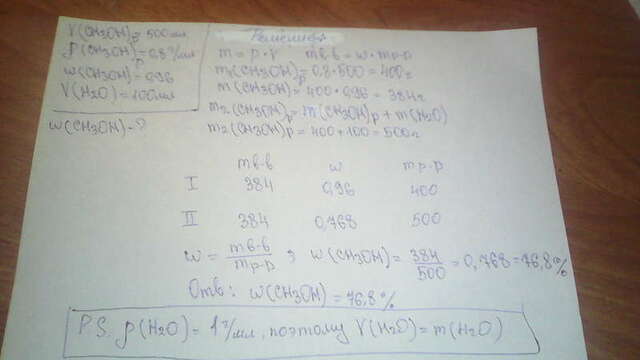 V(CH3OH)р = 500 мл
ρ(CH3OH)р = 0,8 г/мл
w(CH3OH) = 0,96
V(H2O) = 100 мл
w(CH3OH) - ?
Решение:
m = ρ·V mв-в = w·mр-р
m1(CH3OH)р = 0,8·500 = 400г
m(CH3OH) = 400·0,96 = 384г
m2(CH3OH)р = m(CH3OH)р + m(H2O)
m2(CH3OH)р = 400 + 100 = 500г
mв-в w mр-р
I 384 0,96 400
II 384 0,768 500
w = mв-в / mр-р ; w(CH3OH) = 384 / 500 = 0,768 = 76,8%
Отв: w(CH3OH) = 76,8%
P.S. ρ(H2O) = 1г/мл, поэтому V(H2O) = m(H2O)